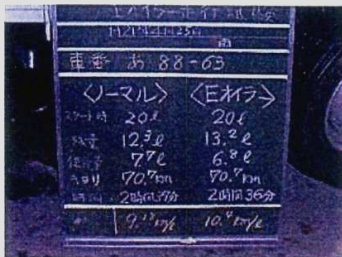 Eオイラー走行試験
雨
車番 あ 88-63
<ノーマル> <Eオイラー>
スタート時 20ℓ 20ℓ
残量 12.3ℓ 13.2ℓ
使用量 7.7ℓ 6.8ℓ
キョリ 70.7km 70.7km
時間 2時間37分 2時間36分
9.18km/ℓ 10.4km/ℓ